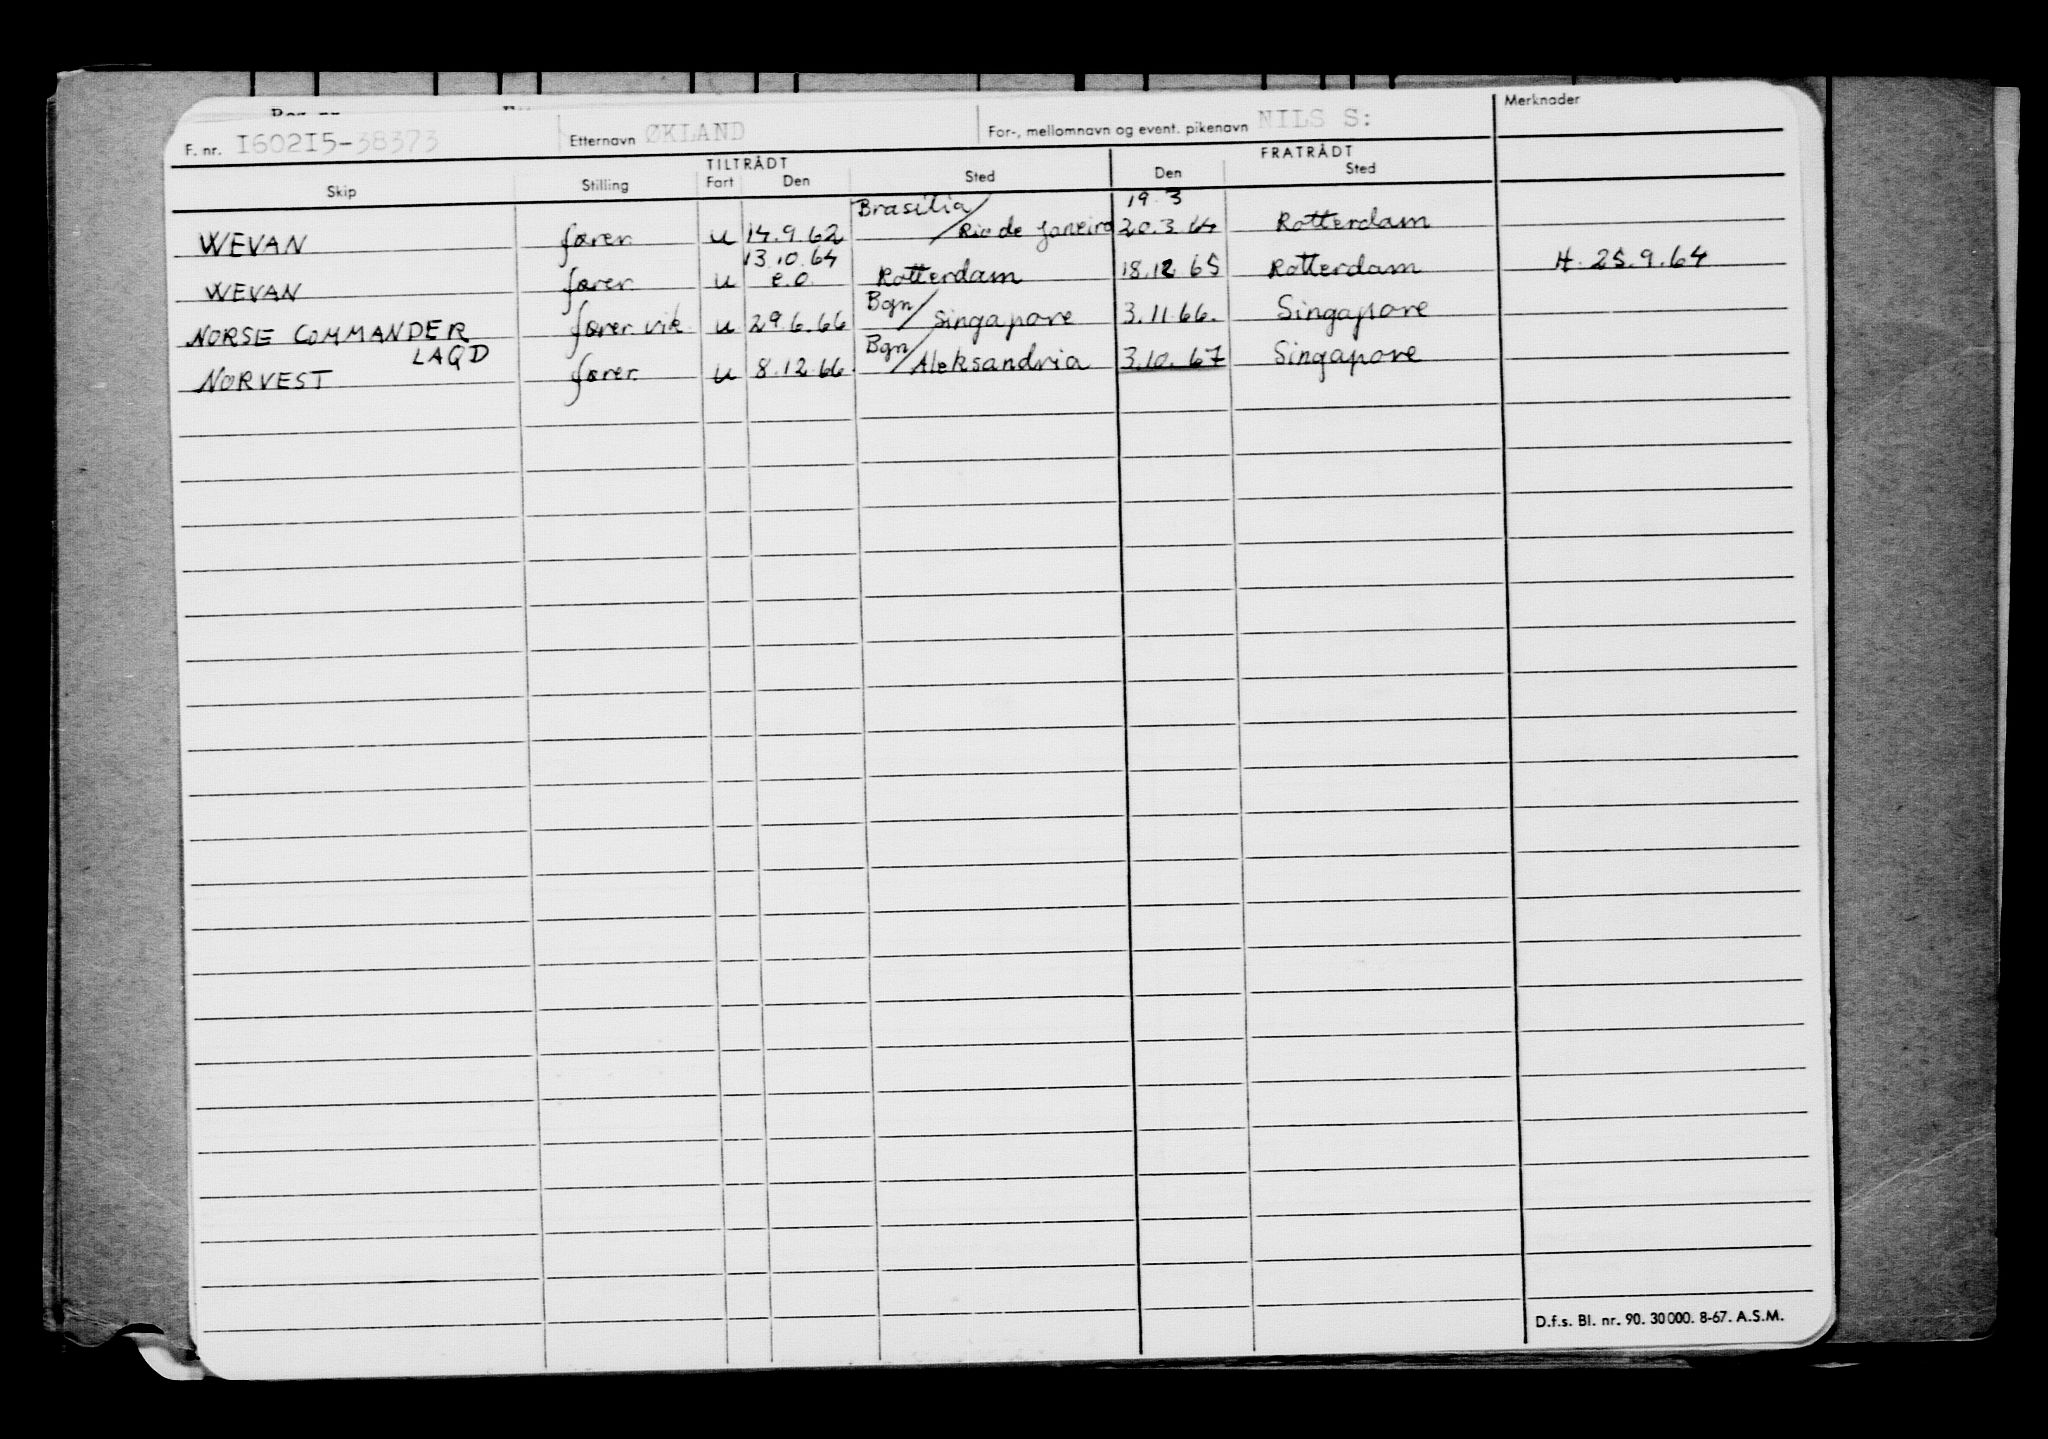 F. nr. I602I5-38373 Etternavn ØKLAND For-, mellomnavn og event. pikenavn NILS S: Merknader
TILTRÅDT FRATRÅDT
Skip Stilling Fart Den Sted Den Sted
Brasilia/ 19.3
WEVAN fører u 14.9.62 Rio de Janeiro 20.3.64 Rotterdam
13.10.64
WEVAN fører u e.o. Rotterdam 18.12.65 Rotterdam H. 25.9.64
NORSE COMMANDER fører vik u 29.6.66 Bgn/Singapore 3.11.66. Singapore
LAQD
NORVEST fører u 8.12.66 Bgn/Aleksandria 3.10.67 Singapore
D.f.s. Bl. nr. 90. 30000. 8-67. A.S.M.